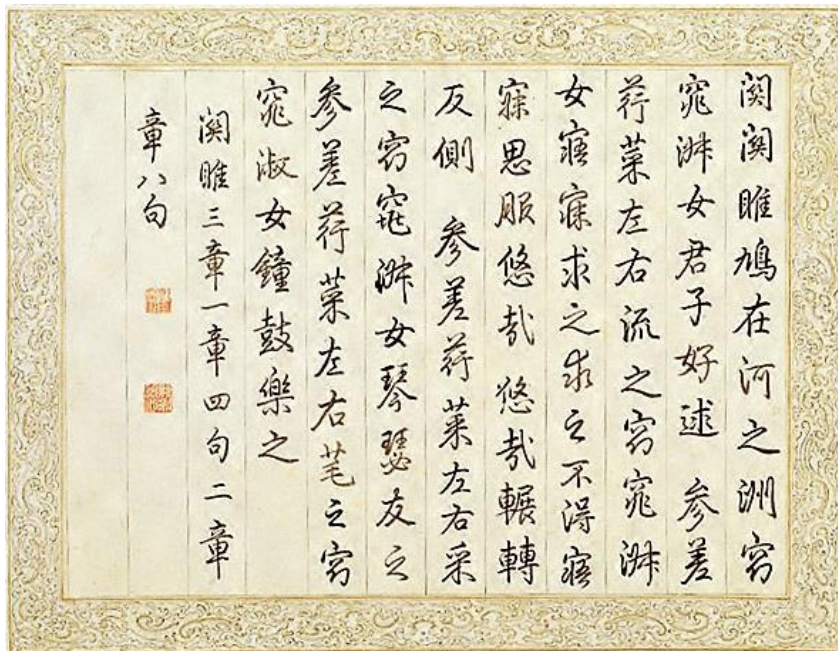 関関雎鳩在河之洲窈
窕淑女君子好逑 参差
荇菜左右流之窈窕淑
女寤寐求之求之不得寤
寐思服悠哉悠哉輾轉
反側 参差荇菜左右采
之窈窕淑女琴瑟友之
参差荇菜左右芼之窈
窕淑女鐘鼓樂之
関雎三章一章四句二章
章八句